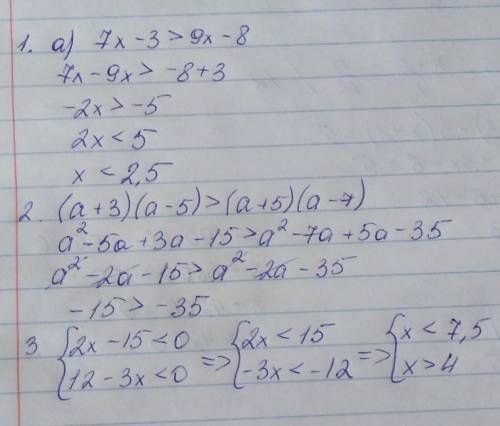 1. а) 7x - 3 > 9x - 8
7x - 9x > -8 + 3
-2x > -5
2x < 5
x < 2,5
2. (a + 3)(a - 5) > (a + 5)(a - 7)
a² - 5a + 3a - 15 > a² - 7a + 5a - 35
a² - 2a - 15 > a² - 2a - 35
-15 > -35
3 {2x - 15 < 0 => {2x < 15 => {x < 7,5
{12 - 3x < 0 {-3x < -12 {x > 4